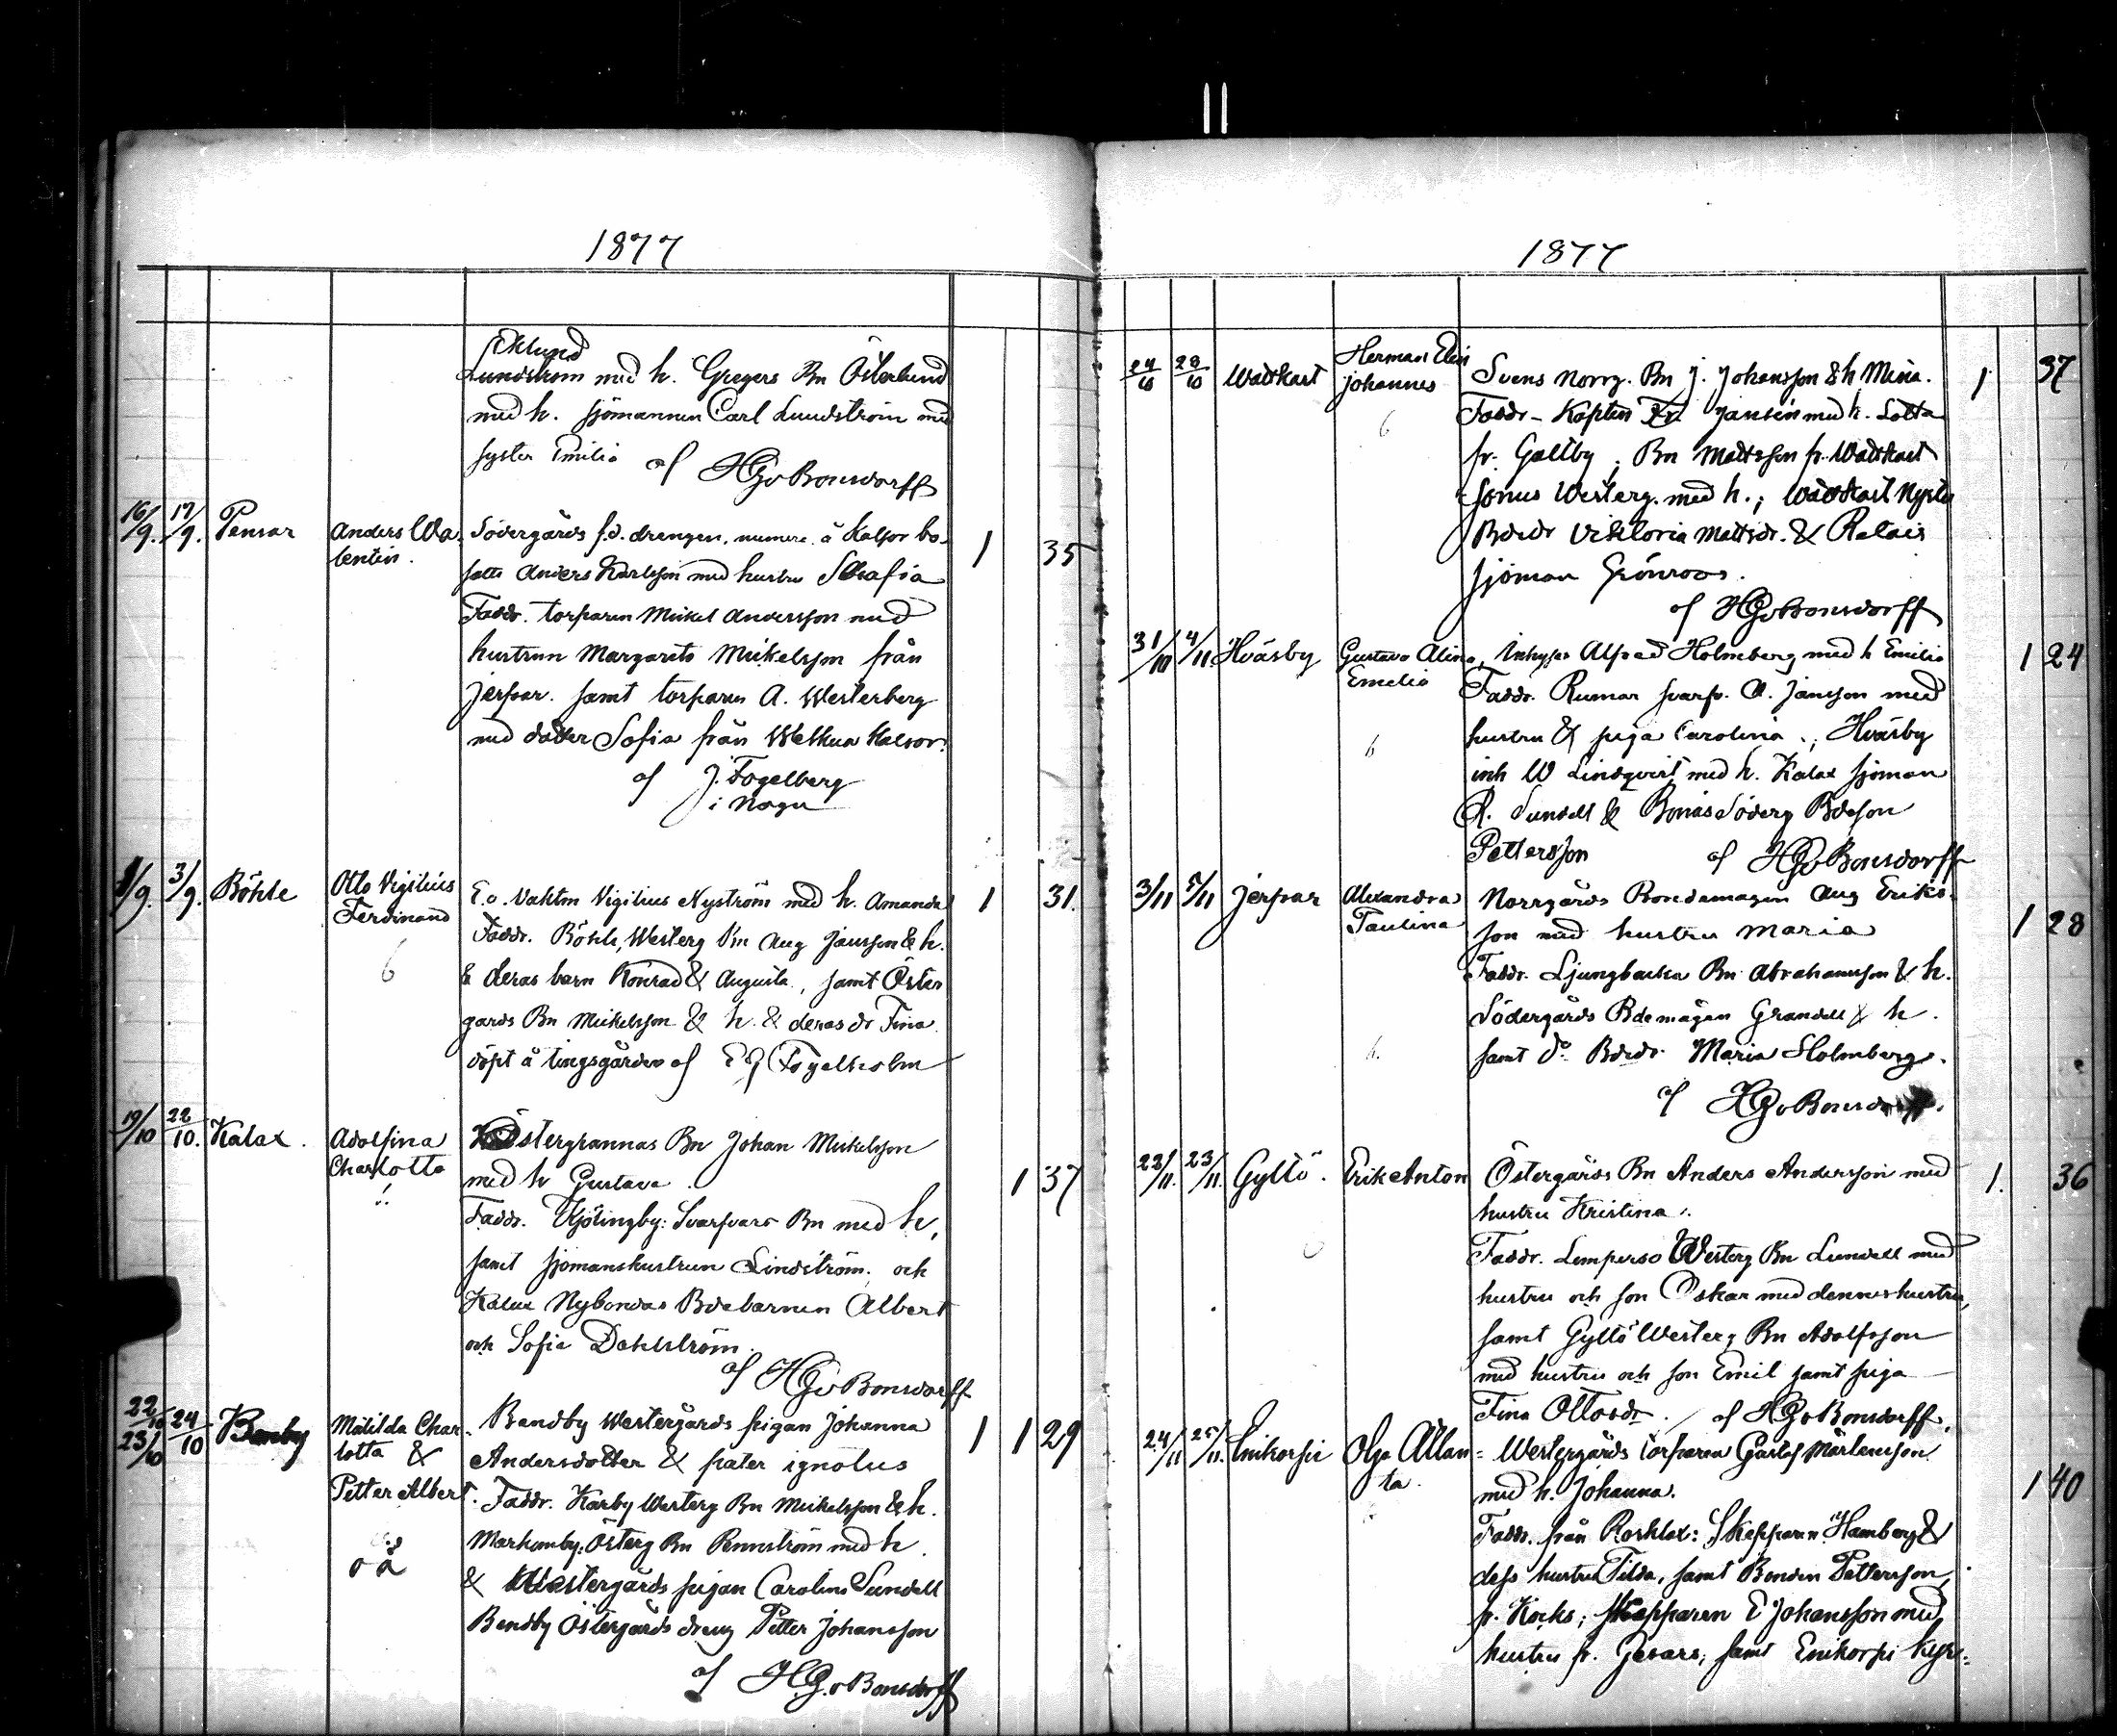 1877
Eklund
Lundström med h. Gregers Bn Österlund
med h. sjömannen Carl Lundström med
syster Emilia af HGvBonsdorff
16/9. 17/9. Pensar Anders Wa- Södergårds f.d. drengen, numera å Kalfor bo- 1 35
lentin. satte Anders Karlsson med hustru Serafia
Faddr. torparen Mickel Andersson med
hustrun Margareta Mickelsson från
Jerfsar. samt torparen A. Westerberg
med dotter Sofia från Welkua Kalvor.
af J. Fogelberg
i Nagu
1/9. 3/9. Böhle Otto Vigilius E.o. Vaktm Vigilius Nyström med h. Amanda 1 31.
Ferdinand Faddr. Böhle, Westerg Bn Aug Jansson & h.
6 & deras barn Konrad & Augusta, samt Öster
gårds Bn Mickelsson & h. & deras dr Fina
döpt å tingsgården af E G Fogelholm
19/10 22/10. Kalax. Adolfina Östergrannas Bn Johan Mickelsson
Charlotta med h Gustava. 1 37
Faddr. Kjölingby: Svarfvars Bn med h,
samt sjömanshustrun Lindström, och
Kalax Nybondas Bdebarnen Albert
och Sofia Dahlström.
af HGvBonsdorff
22/10 24/10 Banby Matilda Char- Bandby Westergårds pigan Johanna 1 1 29
23/10 lotta & Andersdotter & pater ignotus
Petter Albert. Faddr. Kärby Westerg Bn Mickelsson & h.
Markomby: Österg Bn Rennström med h.
oä & Westergårds pigan Carolina Sundell
Bendby Östergårds dreng Petter Johansson
af HGvBonsdorff
1877
27/10 28/10 Wattkast Herman Elis
Johannes Svens Norrg. Bn J. Johansson & h Mina. 1 37
6 Faddr- Kapten Fr. Jansén med h. Lotta
fr. Galtby; Bn Mattsson fr. Wattkast
Jonus Westerg. med h.; Wattkast Nysto
Bdedr Viktoria Mattsdr. & Relais
sjöman Grönroos.
af HGvBonsdorff
31/10 4/11 Hväsby Gustava Alina, Inhyses Alfred Holmberg med h Emilia 1 24
Emelia Faddr. Rumar svarfv. A. Jansson med
6 hustru & piga Carolina.; Hväsby
inh W Lindqvist med h. Kalax sjöman
R. Sundell & Bonäs Söderg Bdeson
Pettersson af HGvBonsdorff
3/11 5/11 Jerfsar Alexandra Norrgårds Bondemågen Aug Eriks-
Paulina son med hustru Maria 1 28
Faddr. Ljungbacka Bn Abrahamsson & h.
Södergårds Bdemågen Grandell & h.
6. samt do Bdedr. Maria Holmberg.
af HGvBonsdorff.
22/11. 23/11. Gyltö. Erik Anton Östergårds Bn Anders Andersson med 1. 36
hustru Kristina.
Faddr. Lemperso Westerg Bn Lundell med
hustru och son Oskar med dennes hustru,
samt Gyltö Westerg Bn Adolfsson
med hustru och son Emil samt piga
Fina Ottosdr. af HGvBonsdorff.
24/11 25/11. Enikorpi Olga Allan- Westergårds torparen Gustaf Mårtensson
ta. med h. Johanna. 1 40
Faddr. från Roshlax: Skepparen Hamberg &
dess hustru Tilda, samt Bonden Pettersson,
fr. Kocks; skepparen E Johansson med
hustru fr. Gesars, samt Enikorpi Kyrk-